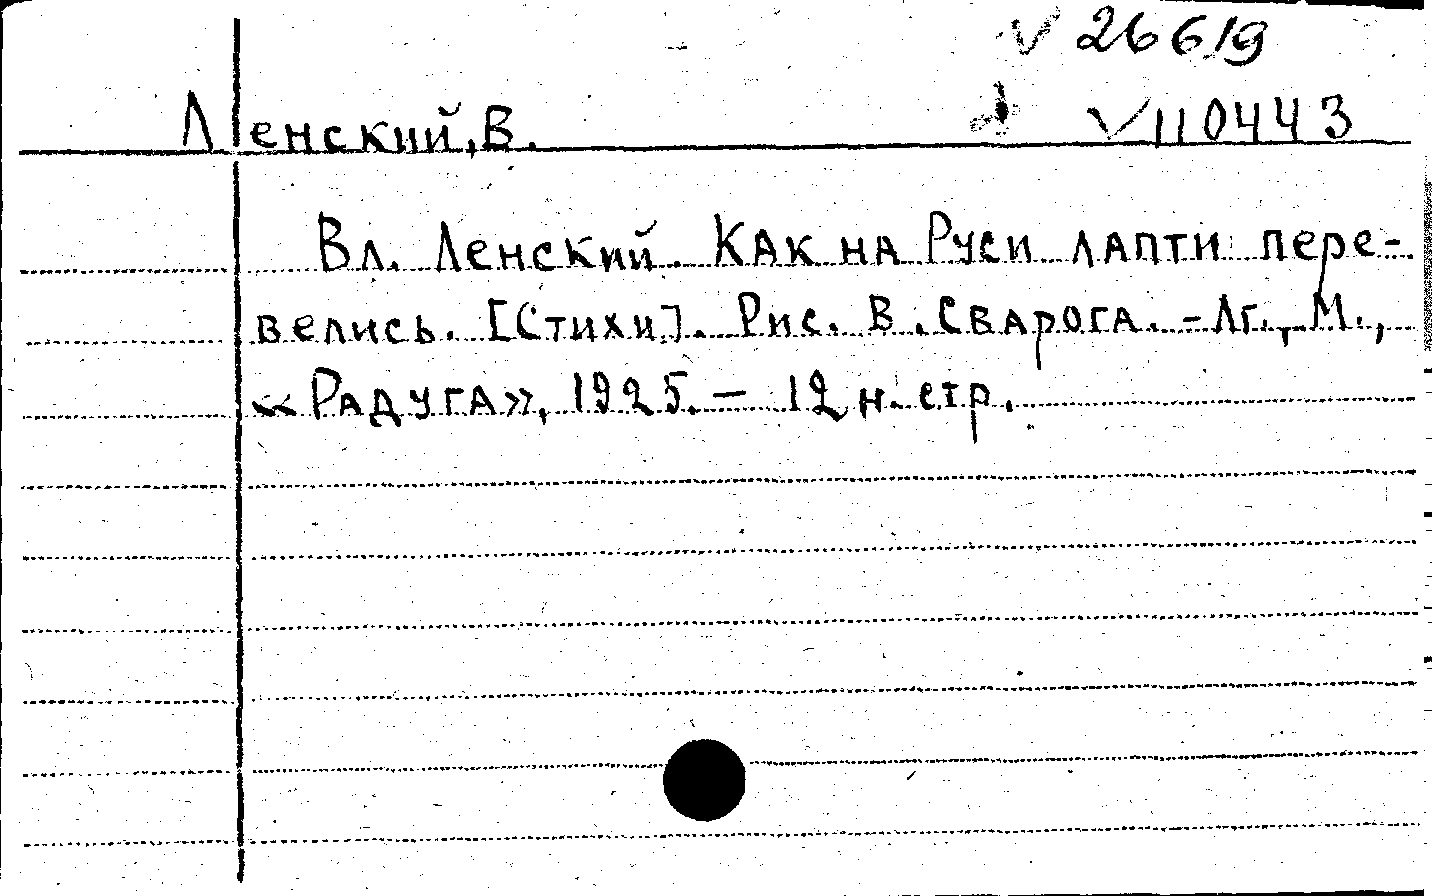 √ 26619
Ленский, В. √ 110443
Вл. Ленский. Как на Руси лапти пере-
велись. [Стихи]. Рис. В. Сварога. - Лг., М.,
«Радуга», 1925. — 12 н. стр.